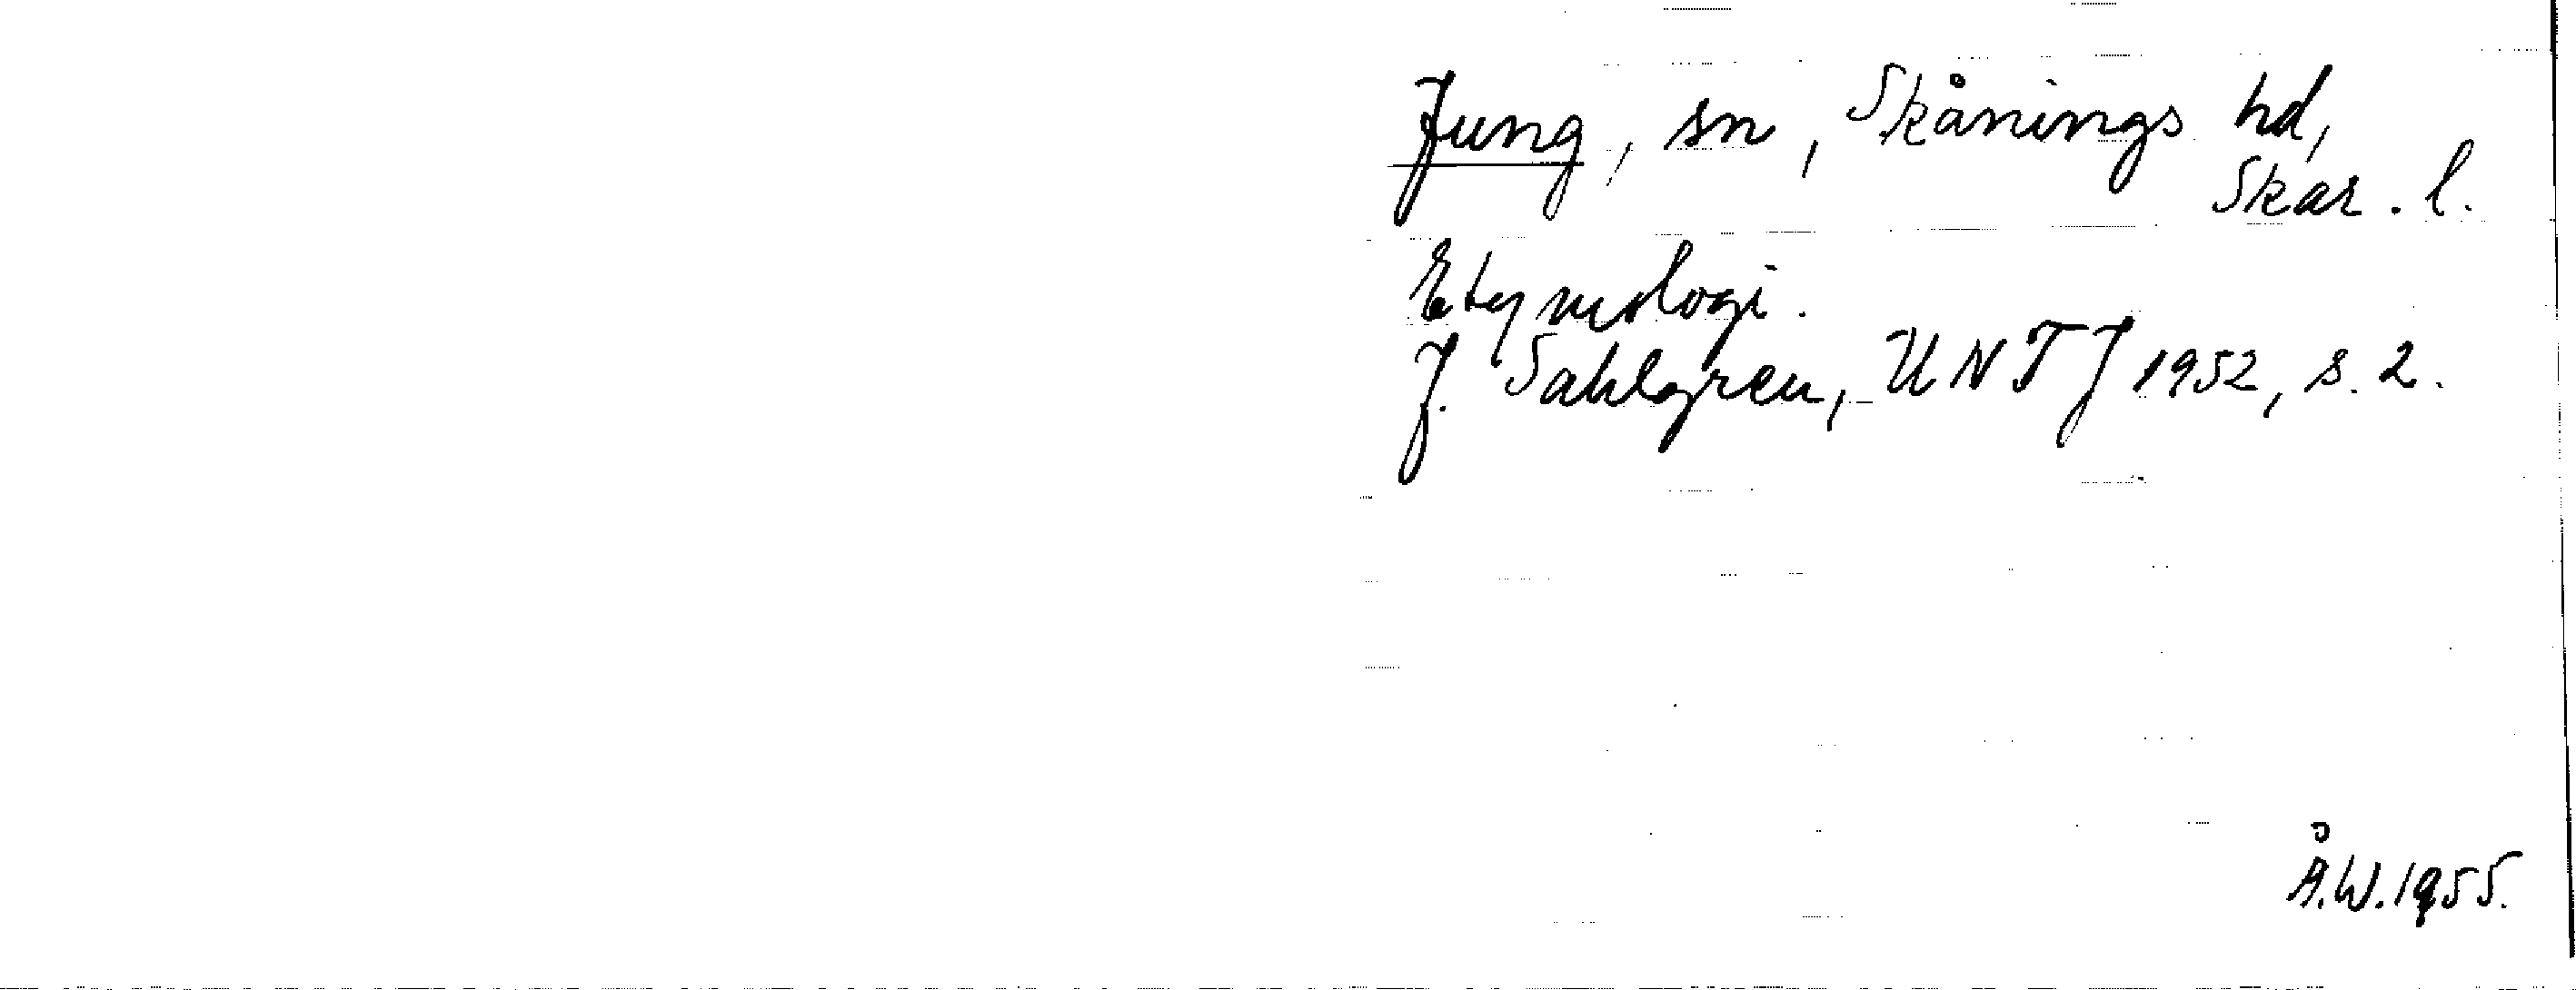 Jung, sn, Skånings hd,
Skar. l.
Etymologi.
J. Sahlgren, UNTJ 1952, s. 2.
Å.W. 1955.